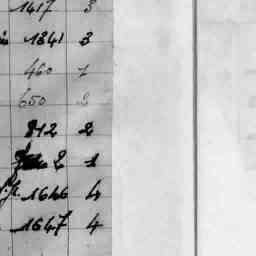 1417 3
1341 3
460 1
650 2
812 2
2 1
1646 4
1647 4